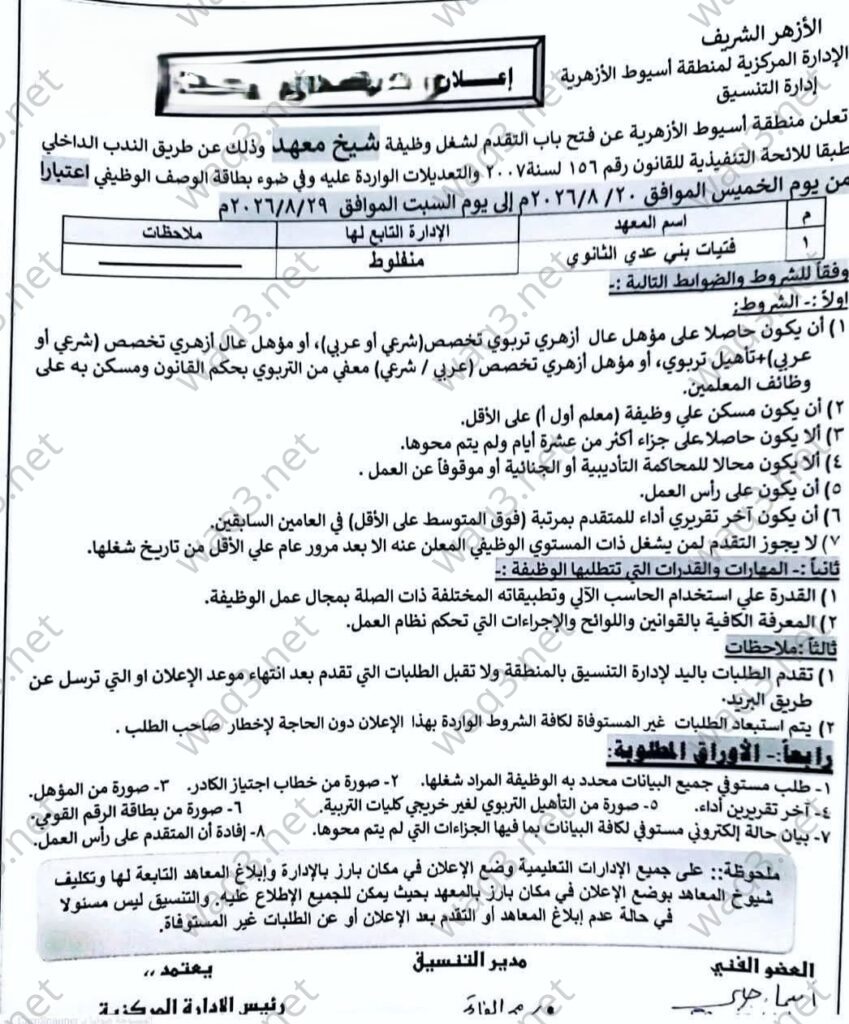 الأزهر الشريف
الإدارة المركزية لمنطقة أسيوط الأزهرية
إدارة التنسيق
إعـــلان
تعلن منطقة أسيوط الأزهرية عن فتح باب التقدم لشغل وظيفة شيخ معهد وذلك عن طريق الندب الداخلي
طبقا للائحة التنفيذية للقانون رقم ١٥٦ لسنة ٢٠٠٧ والتعديلات الواردة عليه وفي ضوء بطاقة الوصف الوظيفي اعتبارا
من يوم الخميس الموافق ٢٠/ ٢٠٢٦/٨م إلى يوم السبت الموافق ٢٠٢٦/٨/٢٩م
م اسم المعهد الإدارة التابع لها ملاحظات
١ فتيات بني عدي الثانوي منفلوط
وفقاً للشروط والضوابط التالية :-
اولاً :- الشروط:
١) أن يكون حاصلا على مؤهل عال أزهري تربوي تخصص(شرعي أو عربي)، أو مؤهل عال أزهري تخصص (شرعي أو
عربي)+تأهيل تربوي، أو مؤهل أزهري تخصص (عربي / شرعي) معفي من التربوي بحكم القانون ومسكن به على
وظائف المعلمين.
٢) أن يكون مسكن علي وظيفة (معلم أول أ) على الأقل.
٣) ألا يكون حاصلا على جزاء أكثر من عشرة أيام ولم يتم محوها.
٤) ألا يكون محالا للمحاكمة التأديبية أو الجنائية أو موقوفاً عن العمل .
٥) أن يكون على رأس العمل.
٦) أن يكون آخر تقريري أداء للمتقدم بمرتبة (فوق المتوسط على الأقل) في العامين السابقين.
٧) لا يجوز التقدم لمن يشغل ذات المستوي الوظيفي المعلن عنه الا بعد مرور عام علي الأقل من تاريخ شغلها.
ثانياً :- المهارات والقدرات التي تتطلبها الوظيفة :-
١) القدرة علي استخدام الحاسب الآلي وتطبيقاته المختلفة ذات الصلة بمجال عمل الوظيفة.
٢) المعرفة الكافية بالقوانين واللوائح والإجراءات التي تحكم نظام العمل.
ثالثاً :ملاحظات
١) تقدم الطلبات باليد لإدارة التنسيق بالمنطقة ولا تقبل الطلبات التي تقدم بعد انتهاء موعد الإعلان او التي ترسل عن
طريق البريد.
٢) يتم استبعاد الطلبات غير المستوفاة لكافة الشروط الواردة بهذا الإعلان دون الحاجة لإخطار صاحب الطلب .
رابعاً:- الأوراق المطلوبة:
١- طلب مستوفي جميع البيانات محدد به الوظيفة المراد شغلها. ٢- صورة من خطاب اجتياز الكادر. ٣- صورة من المؤهل.
٤- آخر تقريرين أداء. ٥- صورة من التأهيل التربوي لغير خريجي كليات التربية. ٦- صورة من بطاقة الرقم القومي.
٧- بيان حالة إلكتروني مستوفي لكافة البيانات بما فيها الجزاءات التي لم يتم محوها. ٨- إفادة أن المتقدم على رأس العمل.
ملحوظة:: على جميع الإدارات التعليمية وضع الإعلان في مكان بارز بالإدارة وإبلاغ المعاهد التابعة لها وتكليف
شيوخ المعاهد بوضع الإعلان في مكان بارز بالمعهد بحيث يمكن للجميع الإطلاع عليه. والتنسيق ليس مسئولا
في حالة عدم إبلاغ المعاهد أو التقدم بعد الإعلان أو عن الطلبات غير المستوفاة.
العضو الفني مدير التنسيق يعتمد ،،
رئيس الادارة المركزية
waq3.net